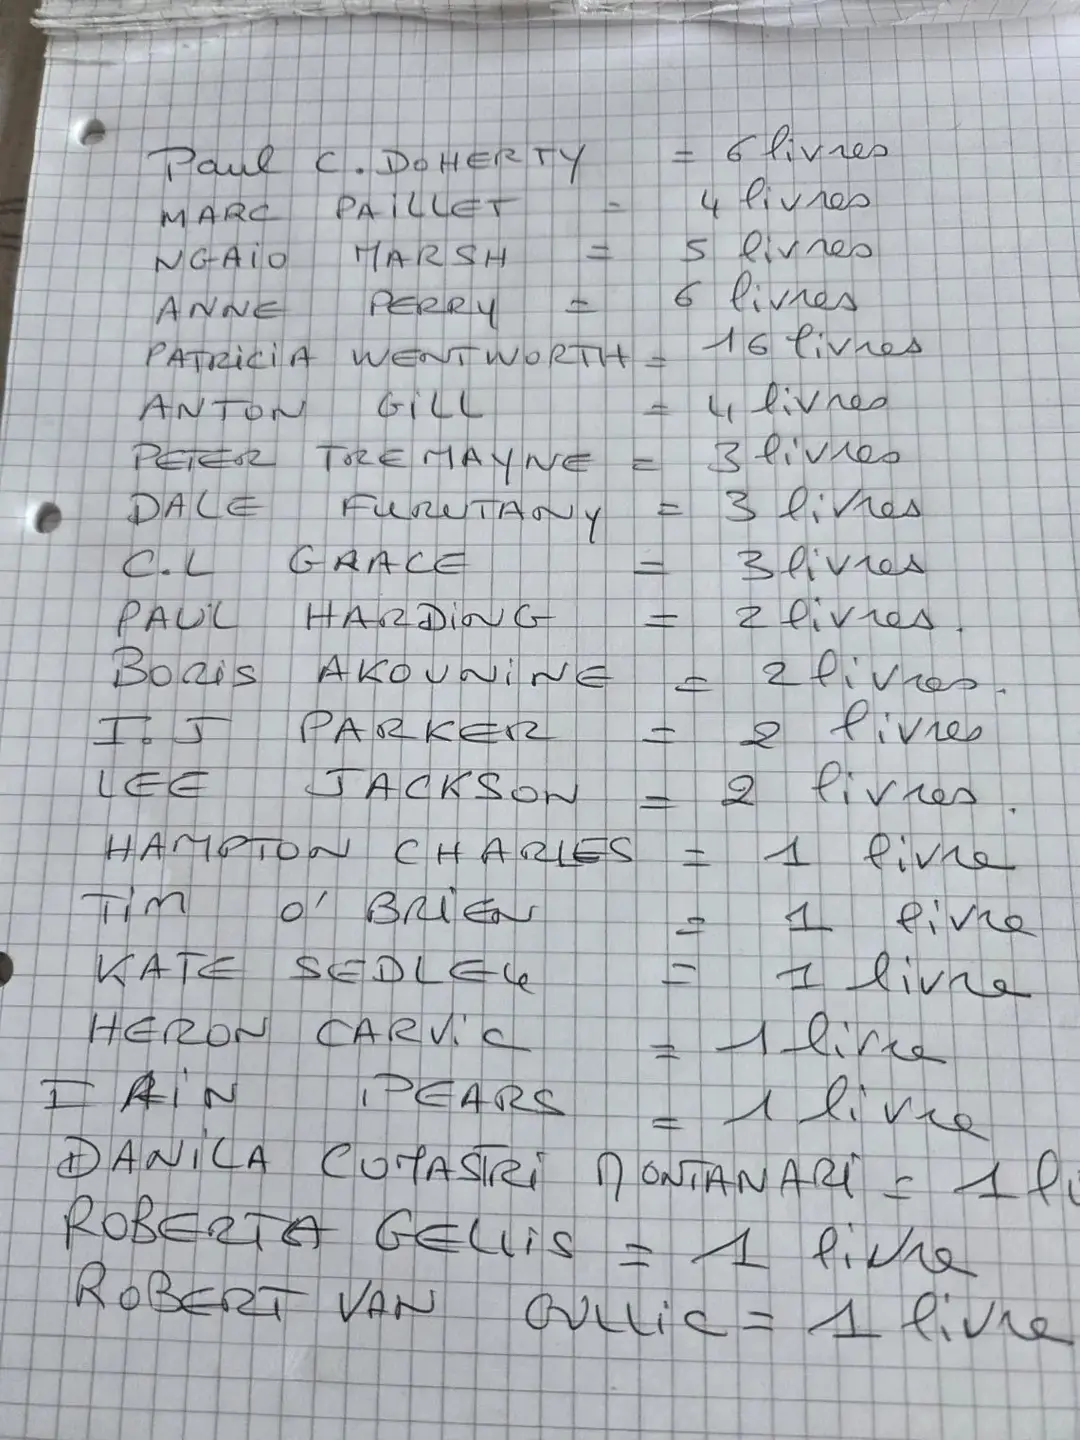 Paul C. DOHERTY = 6 livres
MARC PAILLET = 4 livres
NGAIO MARSH = 5 livres
ANNE PERRY = 6 livres
PATRICIA WENTWORTH = 16 livres
ANTON GILL = 4 livres
PETER TREMAYNE = 3 livres
DALE FURUTANY = 3 livres
C.L GRACE = 3 livres
PAUL HARDING = 2 livres.
BORIS AKOUNINE = 2 livres.
I.J PARKER = 2 livres
LEE JACKSON = 2 livres.
HAMPTON CHARLES = 1 livre
TIM O'BRIEN = 1 livre
KATE SEDLEY = 1 livre
HERON CARVIC = 1 livre
IAIN PEARS = 1 livre
DANILA COMASTRI MONTANARI = 1 li
ROBERTA GELLIS = 1 livre
ROBERT VAN GULLIC = 1 livre